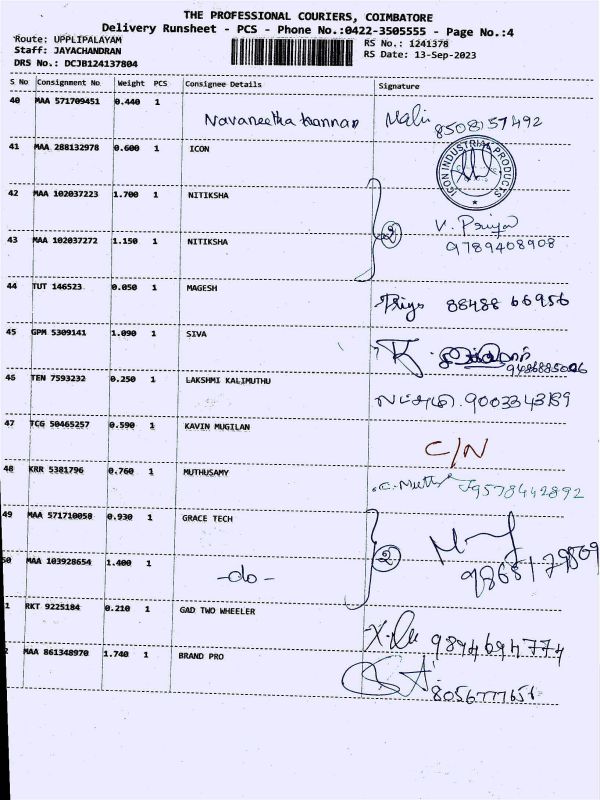 THE PROFESSIONAL COURIERS, COIMBATORE
Delivery Runsheet - PCS - Phone No.:0422-3505555 - Page No.:4
Route: UPPLIPALAYAM RS No.: 1241378
Staff: JAYACHANDRAN RS Date: 13-Sep-2023
DRS No.: DCJB124137804
S No Consignment No Weight PCS Consignee Details Signature
40 MAA 571709451 0.440 1 Navaneetha kannan Mali 8508157492
41 MAA 288132978 0.600 1 ICON ICON INDUSTRIAL PRODUCTS
42 MAA 102037223 1.700 1 NITIKSHA V. Priya
43 MAA 102037272 1.150 1 NITIKSHA 2 9789408908
44 TUT 146523 0.050 1 MAGESH Priya 88488 66956
45 GPM 5309141 1.090 1 SIVA
46 TEN 7593232 0.250 1 LAKSHMI KALIMUTHU லட்சுமி . 9003343189
47 TCG 50465257 0.590 1 KAVIN MUGILAN C/N
48 KRR 5381796 0.760 1 MUTHUSAMY C. Muthu 9578442892
49 MAA 571710058 0.930 1 GRACE TECH
50 MAA 103928654 1.400 1 -do- 2
1 RKT 9225184 0.210 1 GAD TWO WHEELER 9894694774
2 MAA 861348970 1.740 1 BRAND PRO